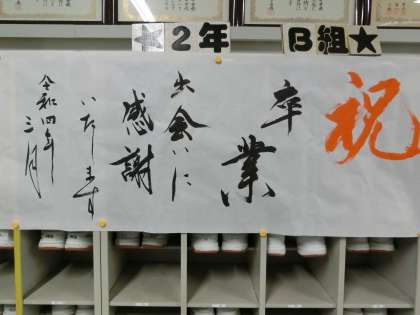 ★2年 B組★
祝
卒業
出会いに
感謝
いたします
令和四年
三月